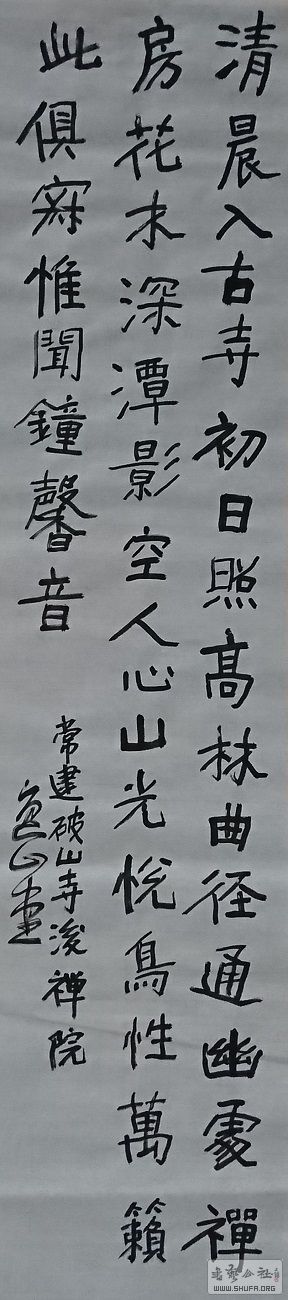 清晨入古寺初日照高林曲径通幽處禪
房花木深潭影空人心山光悦鳥性萬籟
此俱寂惟聞鐘馨音
常建破山寺後禪院
WWW.SHUFA.ORG